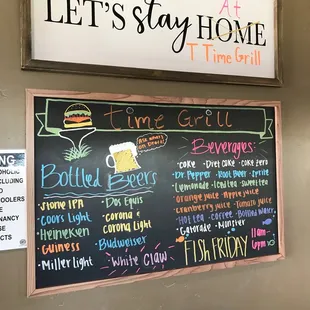 LET'S stay HOME
At
T Time Grill
Time Grill
Ask what's on Draft!
Bottled Beers
Stone IPA
Coors Light
Heineken
Guiness
Miller Light
Dos Equis
Corona &
Corona Light
Budweiser
White Claw
Beverages:
Coke Diet Coke Coke Zero
Dr. Pepper Root Beer Sprite
Lemonade Iced tea Sweet tea
Orange juice Apple juice
Cranberry juice Tomato juice
Hot tea Coffee Bottled Water
Gatorade Monster
FISH FRIDAY
11am
6pm
NG
OHOLIC
CLUDING
D
COOLERS
E
NANCY
USE
CTS